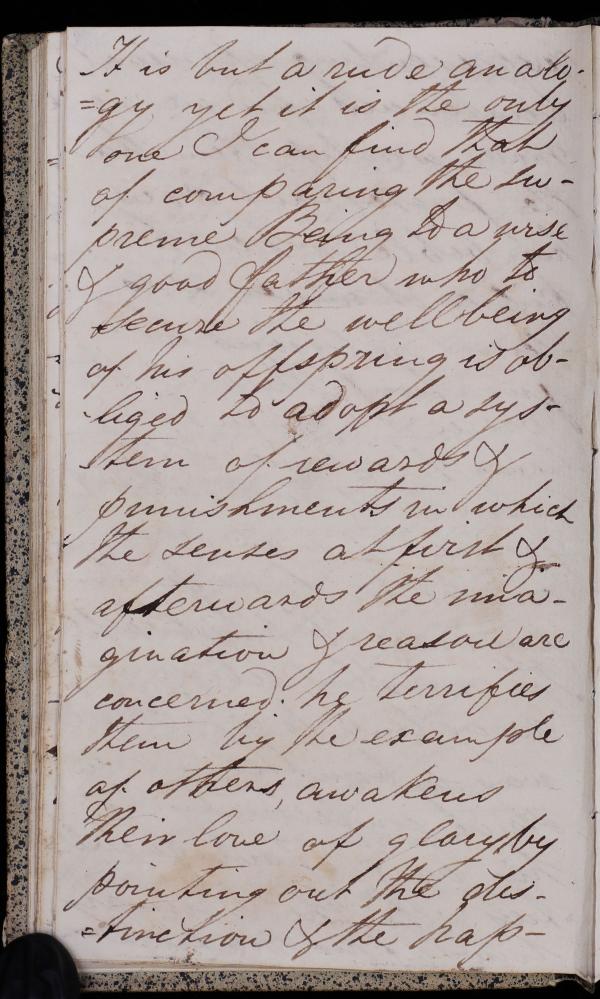 It is but a rude analo-
=gy yet it is the only
one I can find that
of comparing the su-
preme Being to a wise
& good father who to
secure the wellbeing
of his offspring is ob-
liged to adopt a sys-
tem of rewards &
punishments in which
the senses at first &
afterwards the ima-
gination & reason are
concerned. he terrifies
them by the example
of others, awakens
their love of glory by
pointing out the dis-
=tinction & the hap-